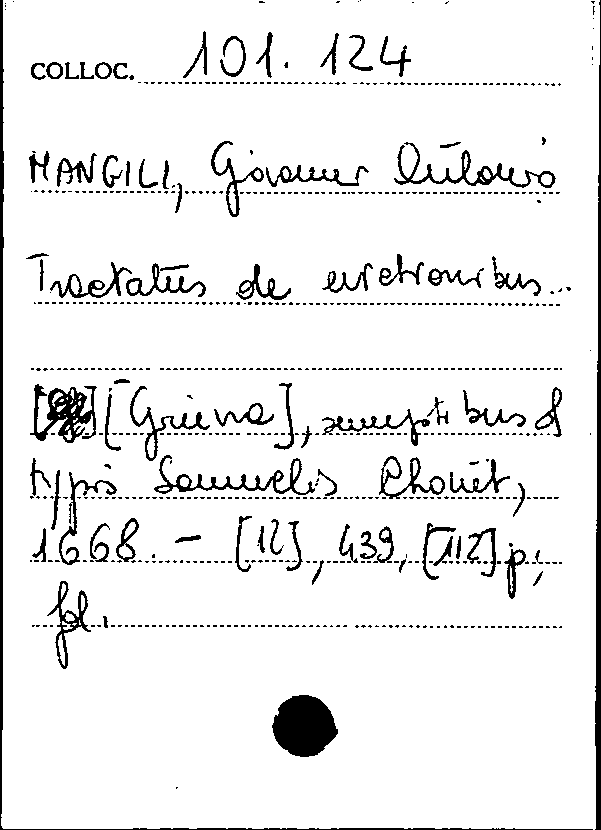 COLLOC. 101. 124
MANGILI, Giovanni
Tractatus de evictionibus...
[Gineva], sumptibus &
typis Samuelis Chouët,
1668. - [12], 439, [112] p;
fol.